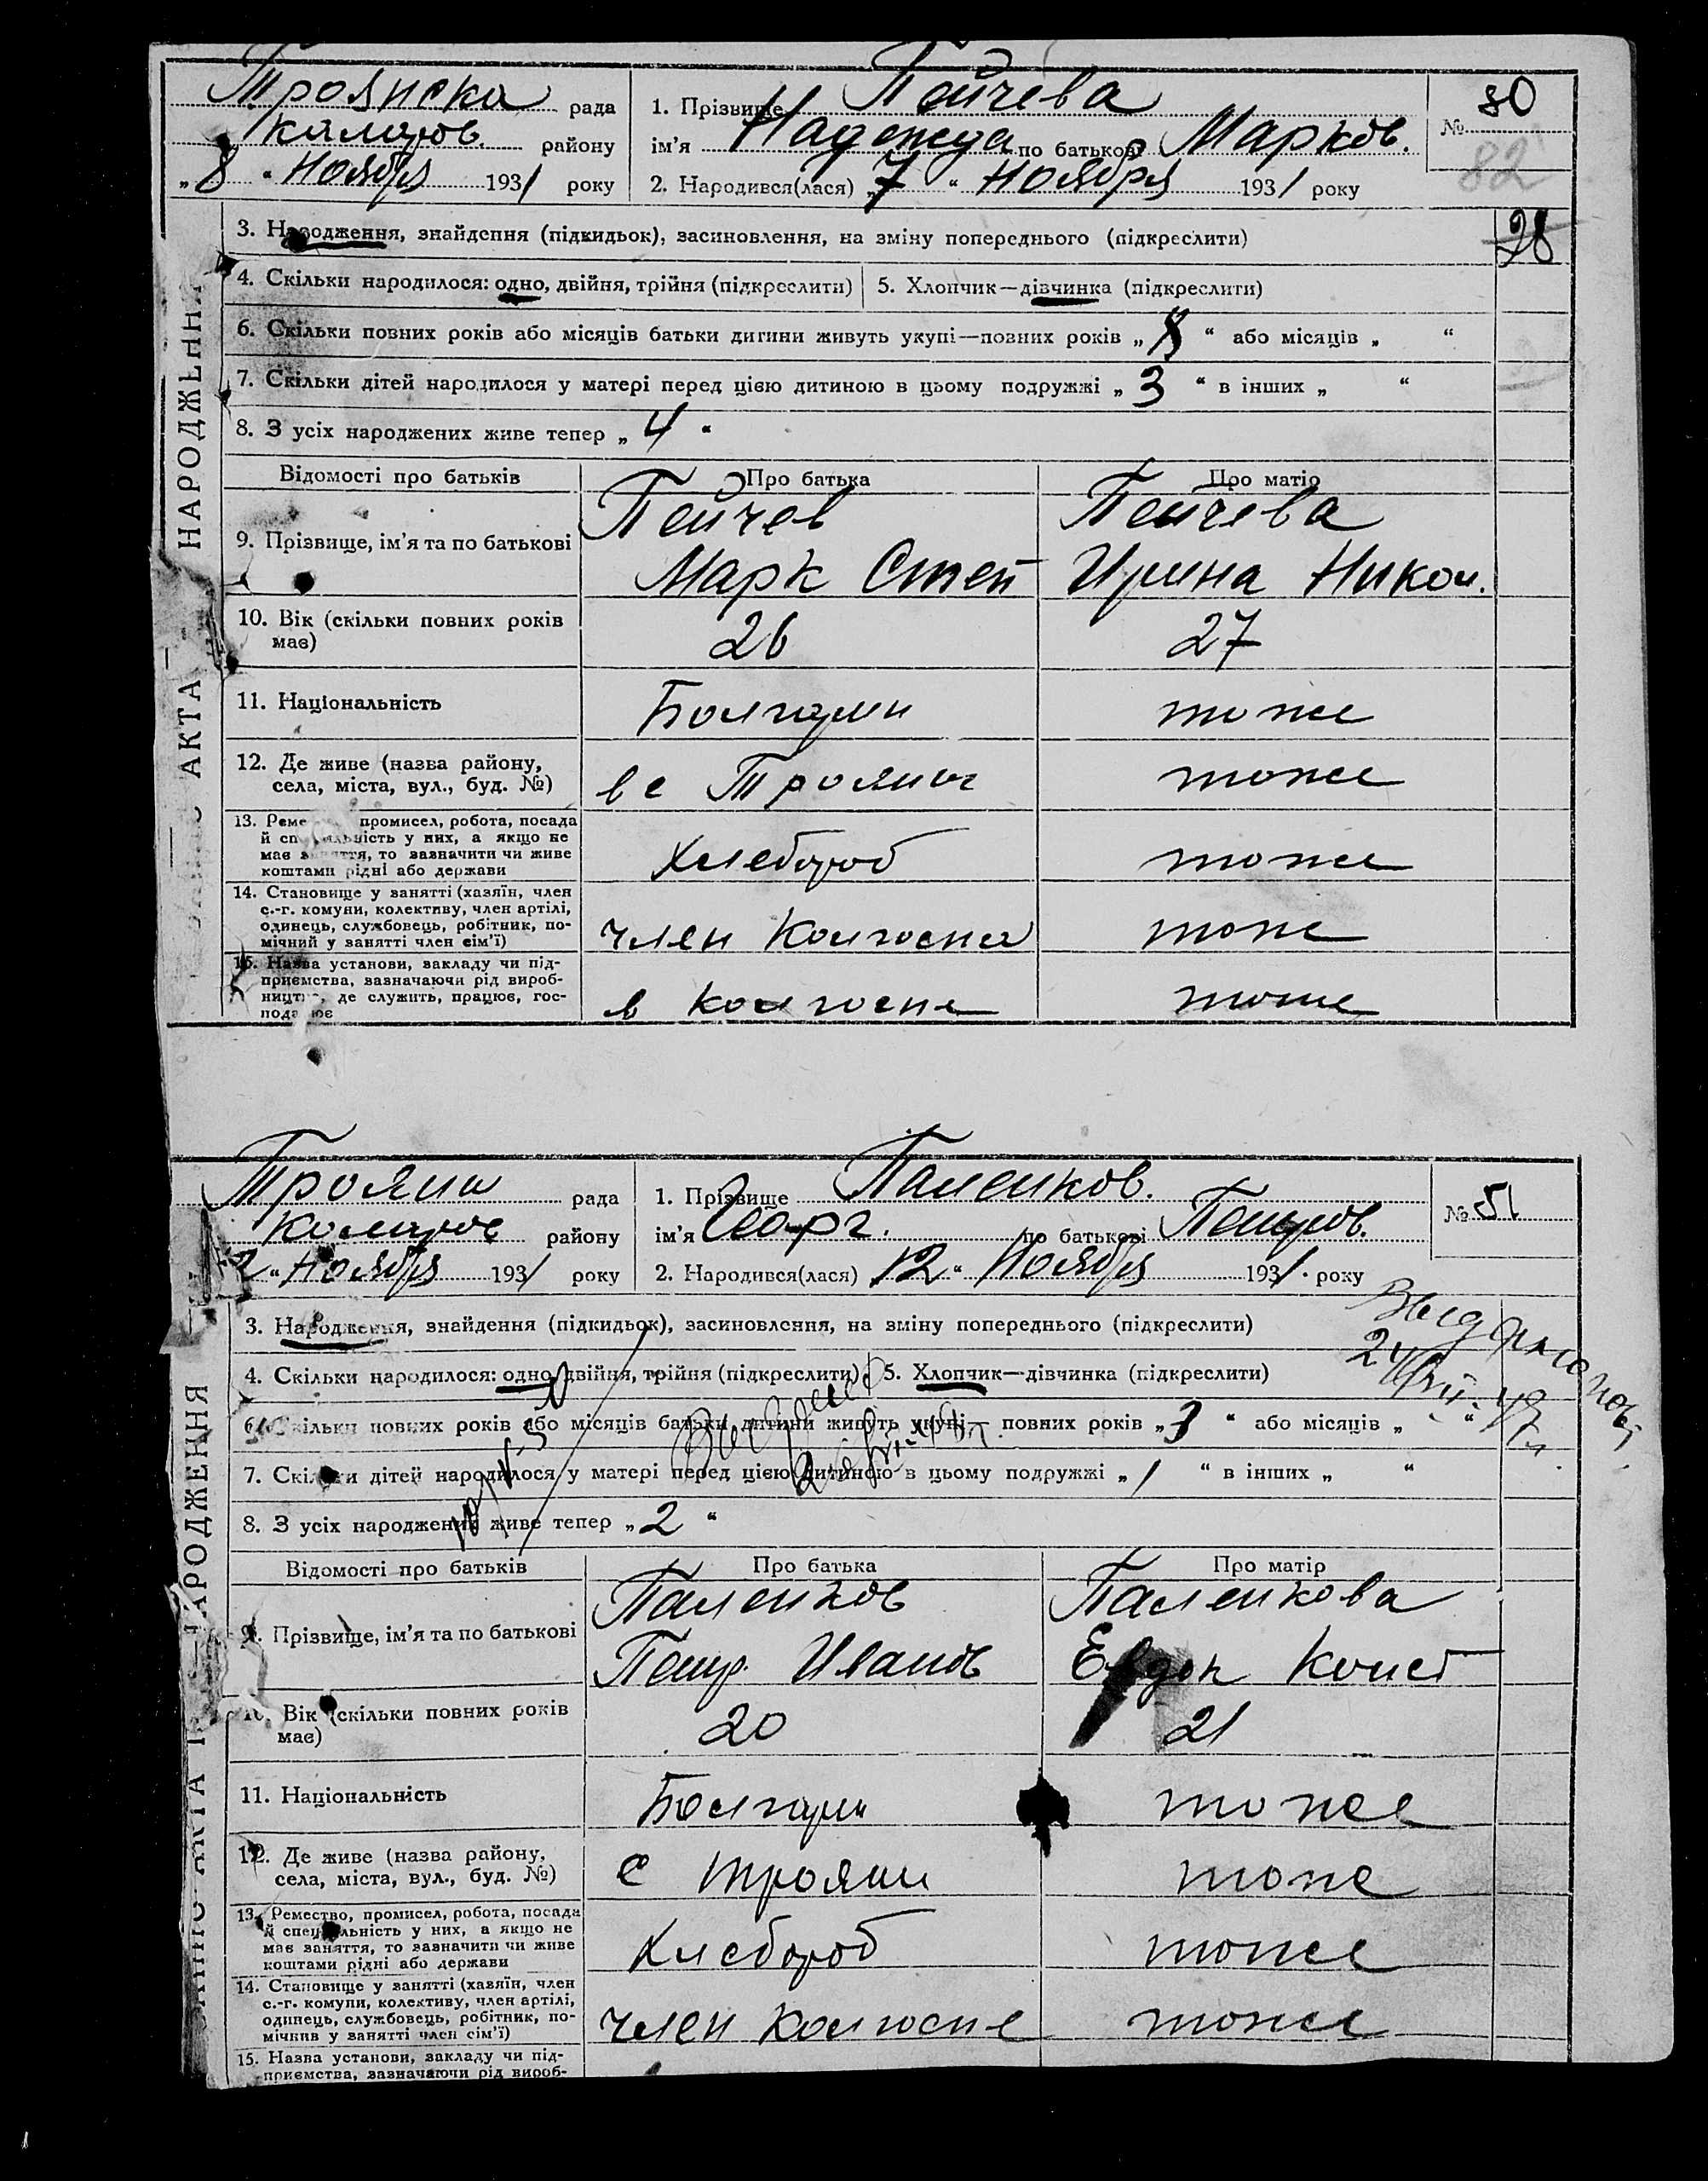 Троянска рада
района
„8“ Ноября 1931 року
1. Прізвище Пейчева
ім'я Надежда по батькові Марков.
2. Народився(лася) „7“ Ноября 1931 року
№ 80
82
28
НАРОДЖЕННЯ
АКТА
3. Народження, знайдення (підкидьок), засиновлення, на зміну попереднього (підкреслити)
4. Скільки народилося: одно, двійня, трійня (підкреслити) 5. Хлопчик—дівчинка (підкреслити)
6. Скільки повних років або місяців батьки дитини живуть укупі—повних років „ “ або місяців „ “
7. Скільки дітей народилося у матері перед цією дитиною в цьому подружжі „3“ в інших „ “
8. З усіх народжених живе тепер „4“
Відомості про батьків Про батька Про матір
9. Прізвище, ім'я та по батькові
Пейчев Пейчева
Марк Степ Ирина Никол.
10. Вік (скільки повних років має) 26 27
11. Національність Болгари тоже
12. Де живе (назва району,
села, міста, вул., буд. №) в с Трояны тоже
13. Реме промисел, робота, посада
й спеціальність у них, а якщо не
має заняття, то зазначити чи живе
коштами рідні або держави
Хлебороб тоже
14. Становище у занятті (хазяїн, член
с.-г. комуни, колективу, член артілі,
одинець, службовець, робітник, по-
мічний у занятті член сім'ї)
член Колгоспа тоже
15. Назва установи, закладу чи під-
приємства, зазначаючи рід вироб-
ництва, де служить, працює, гос-
подарює
в колгоспе тоже
Трояни рада
района
12 „ Ноября 1931 року
1. Прізвище Паленков.
ім'я Георг. по батькові Петров.
2. Народився(лася) 12 „ Ноября 1931 року
№ 51
НАРОДЖЕННЯ
3. Народження, знайдення (підкидьок), засиновлення, на зміну попереднього (підкреслити)
4. Скільки народилося: одно, двійня, трійня (підкреслити) 5. Хлопчик—дівчинка (підкреслити)
6. Скільки повних років або місяців батьки дитини живуть укупі—повних років „3“ або місяців „ “
7. Скільки дітей народилося у матері перед цією дитиною в цьому подружжі „1“ в інших „ “
8. З усіх народжених живе тепер „2“
Відомості про батьків Про батька Про матір
9. Прізвище, ім'я та по батькові
Паленков Паленкова
Петр Иванов Евдок Конст
10. Вік (скільки повних років має) 20 21
11. Національність Болгари тоже
12. Де живе (назва району,
села, міста, вул., буд. №) с Трояни тоже
13. Ремество, промисел, робота, посада
й спеціальність у них, а якщо не
має заняття, то зазначити чи живе
коштами рідні або держави
Хлебороб тоже
14. Становище у занятті (хазяїн, член
с.-г. комуни, колективу, член артілі,
одинець, службовець, робітник, по-
мічник у занятті член сім'ї)
член колгоспе тоже
15. Назва установи, закладу чи під-
приємства, зазначаючи рід вироб-